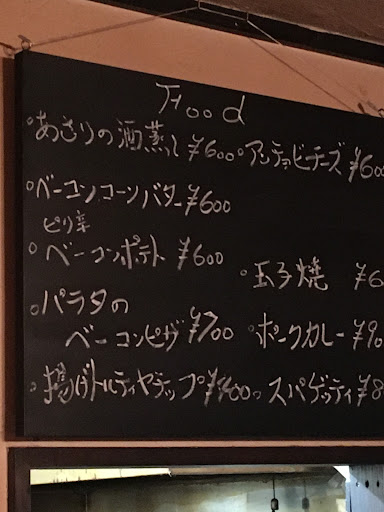 Food
○あさりの酒蒸し ¥600 ○アンチョビチーズ ¥600
○ベーコンコーンバター ¥600
ピリ辛
○ベーコンポテト ¥600
○玉子焼 ¥6
○パラタの
ベーコンピザ ¥700 ○ポークカレー ¥90
○揚げトルティヤチップ ○スパゲッティ ¥8